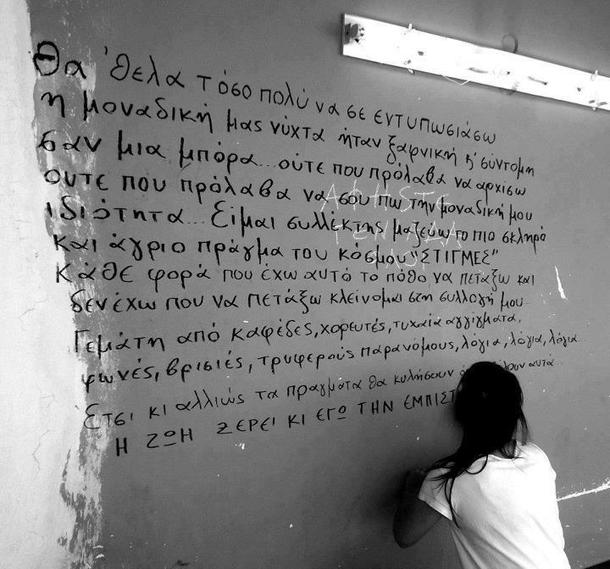 Θα 'θελα τόσο πολύ να σε εντυπωσιάσω
η μοναδική μας νύχτα ήταν ξαφνική κ' σύντομη
σαν μια μπόρα... ούτε που πρόλαβα να αρχίσω
ούτε που πρόλαβα να σου πω την μοναδική μου
ιδιότητα... Είμαι συλλέκτης μαζεύω το πιο σκληρό
και άγριο πράγμα του κόσμου "ΣΤΙΓΜΕΣ"
κάθε φορά που έχω αυτό το πόθο να πετάξω και
δεν έχω που να πετάξω κλείνομαι στη συλλογή μου
Γεμάτη από καφέδες, χορευτές, τυχαία αγγίγματα,
φωνές, βρισιές, τρυφερούς παρανόμους, λόγια, λόγια, λόγια
Ετσι κι αλλιώς τα πραγματα θα κυλήσουν αυτά
Η ΖΩΗ ΞΕΡΕΙ ΚΙ ΕΓΩ ΤΗΝ ΕΜΠΙΣΤ